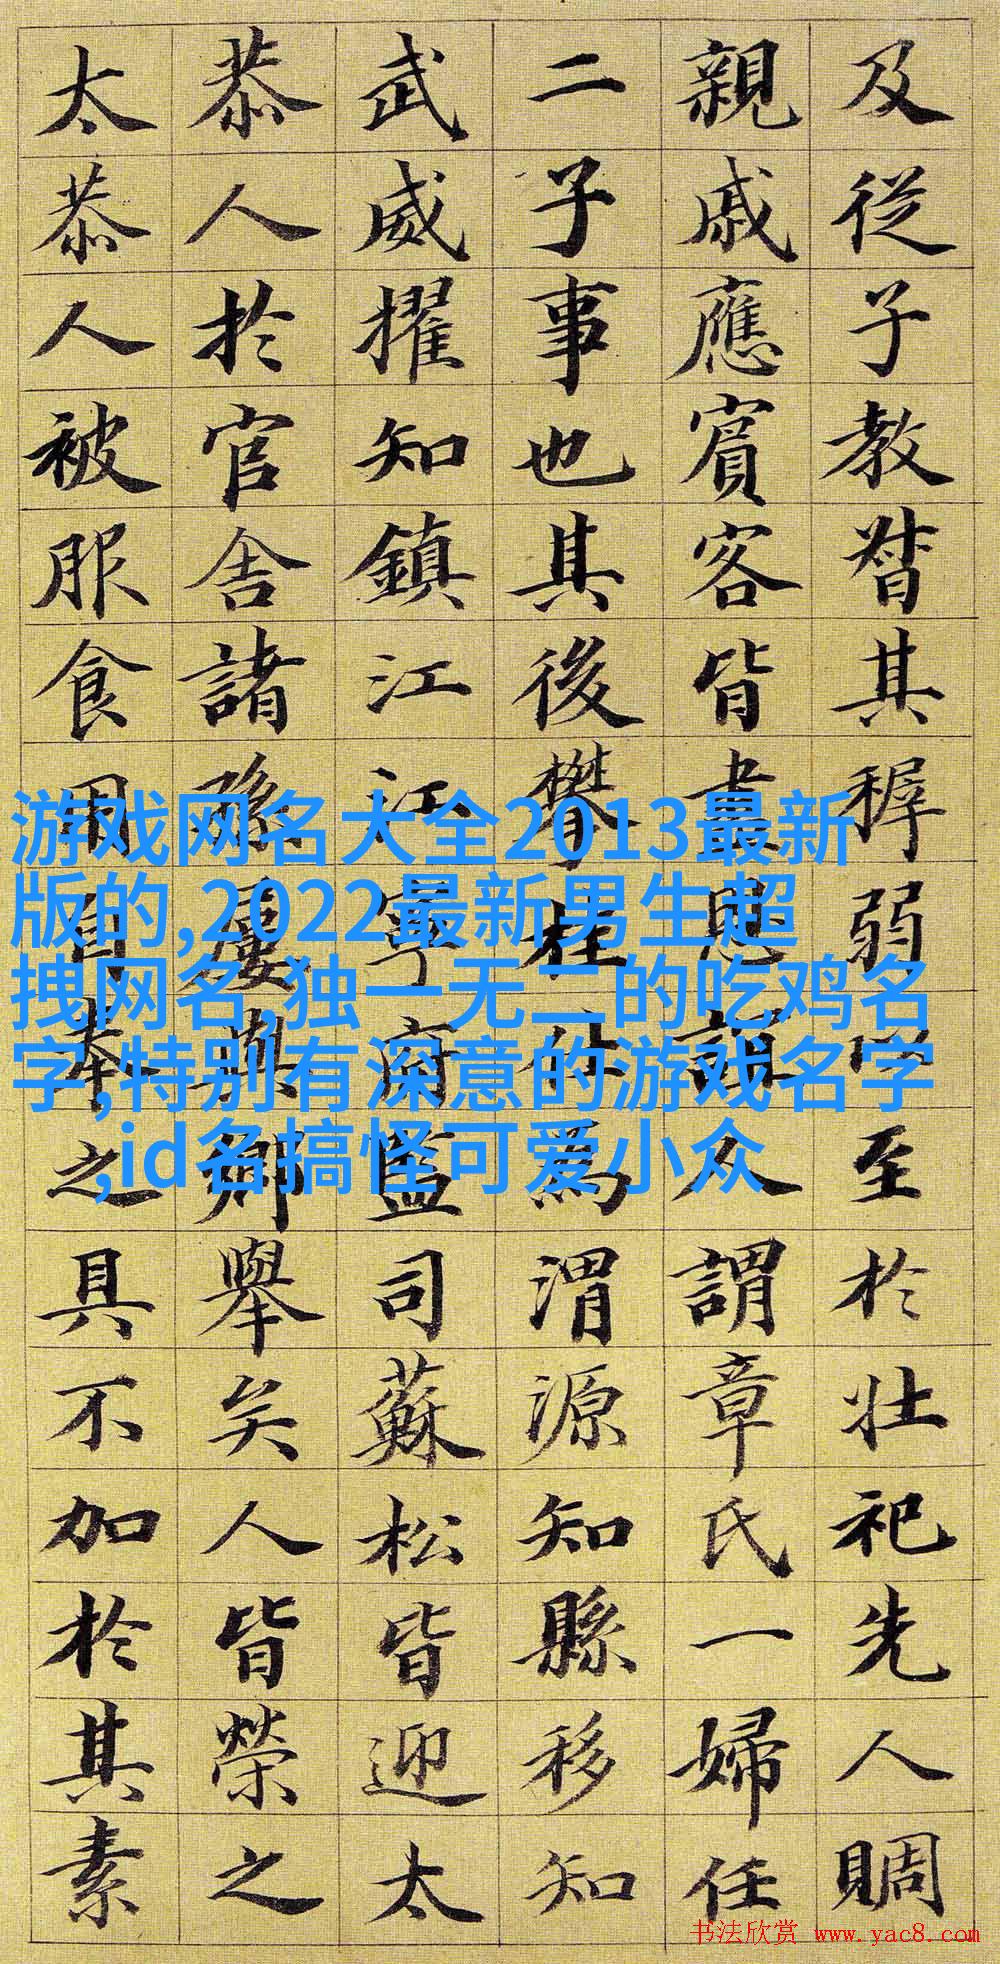 及從子教督其穉弱以至於壯祀先人賙
親戚應賓客皆盡思誠人謂章氏一婦任
二子事也其後攀桂仕爲渭源知縣移知
武威擢知鎮江江寧府監司蘇松皆迎太
恭人於官舍諸孫屢鄉舉矣人皆榮之
太恭人被服食用自奉之具不加於其素
游戏网名大全2013最新
版的,2022最新男生超
拽网名,独一无二的吃鸡名
字,特别有深意的游戏名字
,id名搞怪可爱小众
书法欣赏 www.yac8.com